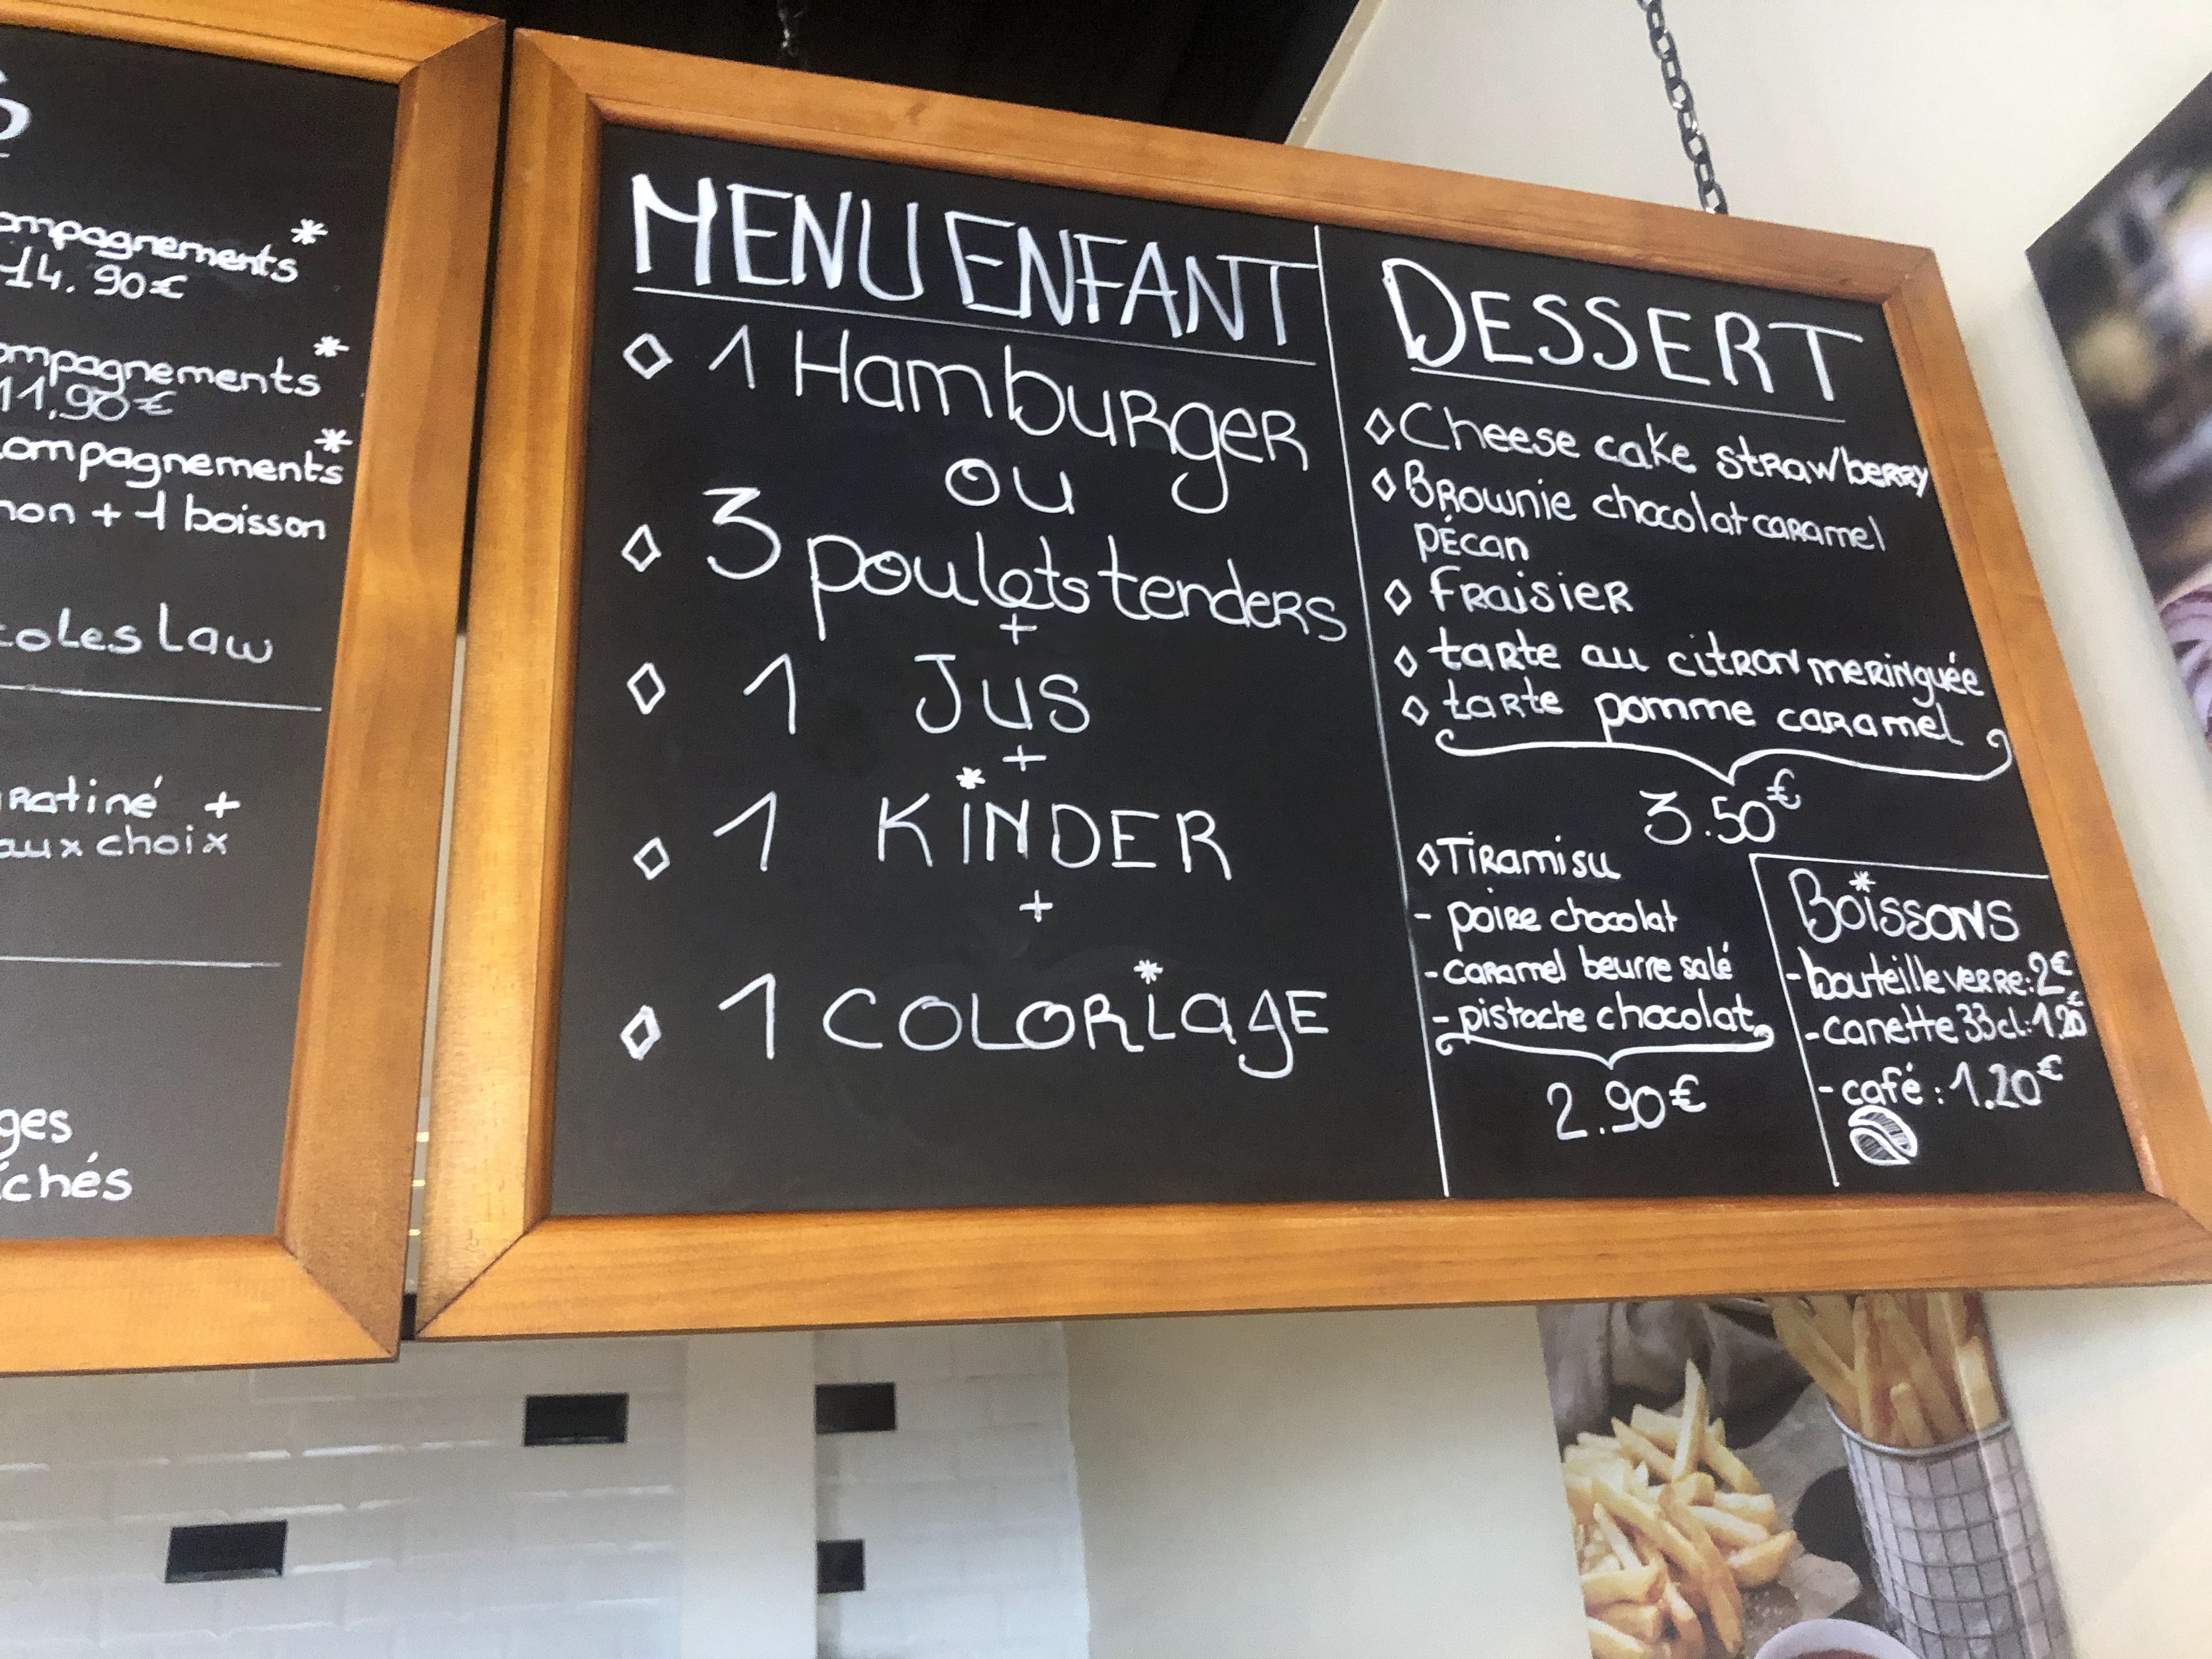 ompagnements*
14.90€
ompagnements*
11,90€
ompagnements*
non + 1 boisson
coleslaw
ratiné +
aux choix
ges
ichés
MENU ENFANT
◇ 1 Hamburger
ou
◇ 3 poulets tenders
+
◇ 1 Jus
+
◇ 1 KINDER
+
◇ 1 COLORIAGE
DESSERT
◇ Cheese cake strawberry
◇ Brownie chocolat caramel
pécan
◇ fraisier
◇ tarte au citron meringuée
◇ tarte pomme caramel
3.50€
◇ Tiramisu
- poire chocolat
- caramel beurre salé
- pistache chocolat
2.90€
Boissons
- bouteille verre: 2€
- canette 33cl: 1.20€
- café : 1.20€